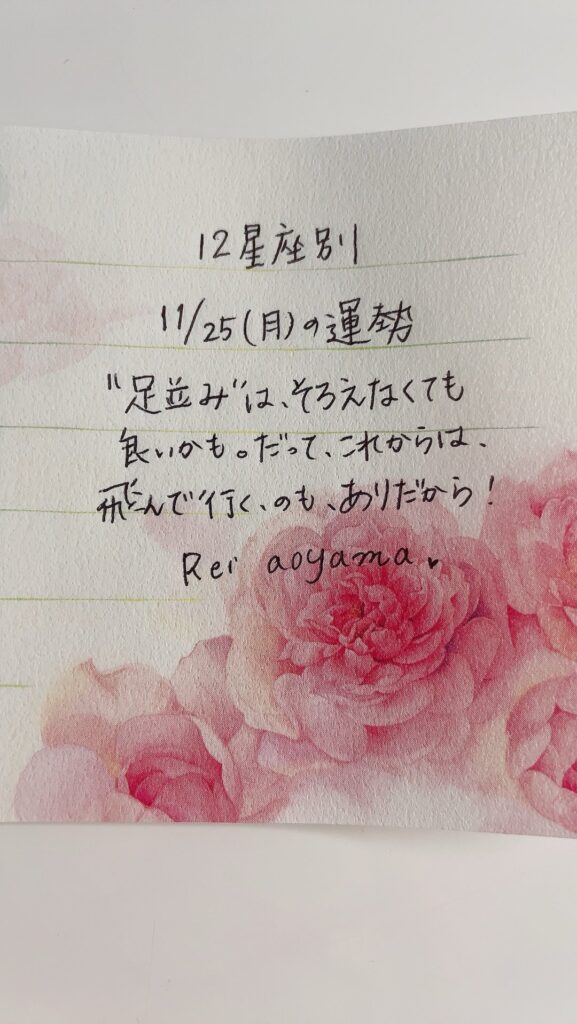 12星座別
11/25(月)の運勢
"足並み"は、そろえなくても
良いかも。だって、これからは、
飛んで行く、のも、ありだから!
Rei aoyama ♥